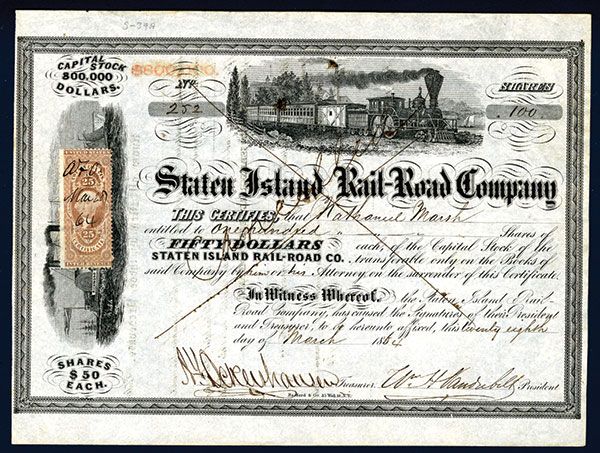 S-39A
CAPITAL STOCK
800,000
DOLLARS.
$800,000.
No.
SHARES
252
100
Staten Island Rail-Road Company
THIS CERTIFIES, that Nathaniel Marsh
entitled to One hundred Shares of
FIFTY DOLLARS each, of the Capital Stock of the
STATEN ISLAND RAIL-ROAD CO. transferable only on the Books of
said Company by him or his Attorney on the surrender of this Certificate.
In Witness Whereof, the Staten Island Rail-
Road Company, has caused the Signatures of their President
and Treasurer, to be hereunto affixed, this twenty eighth
day of March 1864
25
25
64
SHARES
$50
EACH.
Treasurer.
Wm H Vanderbilt President